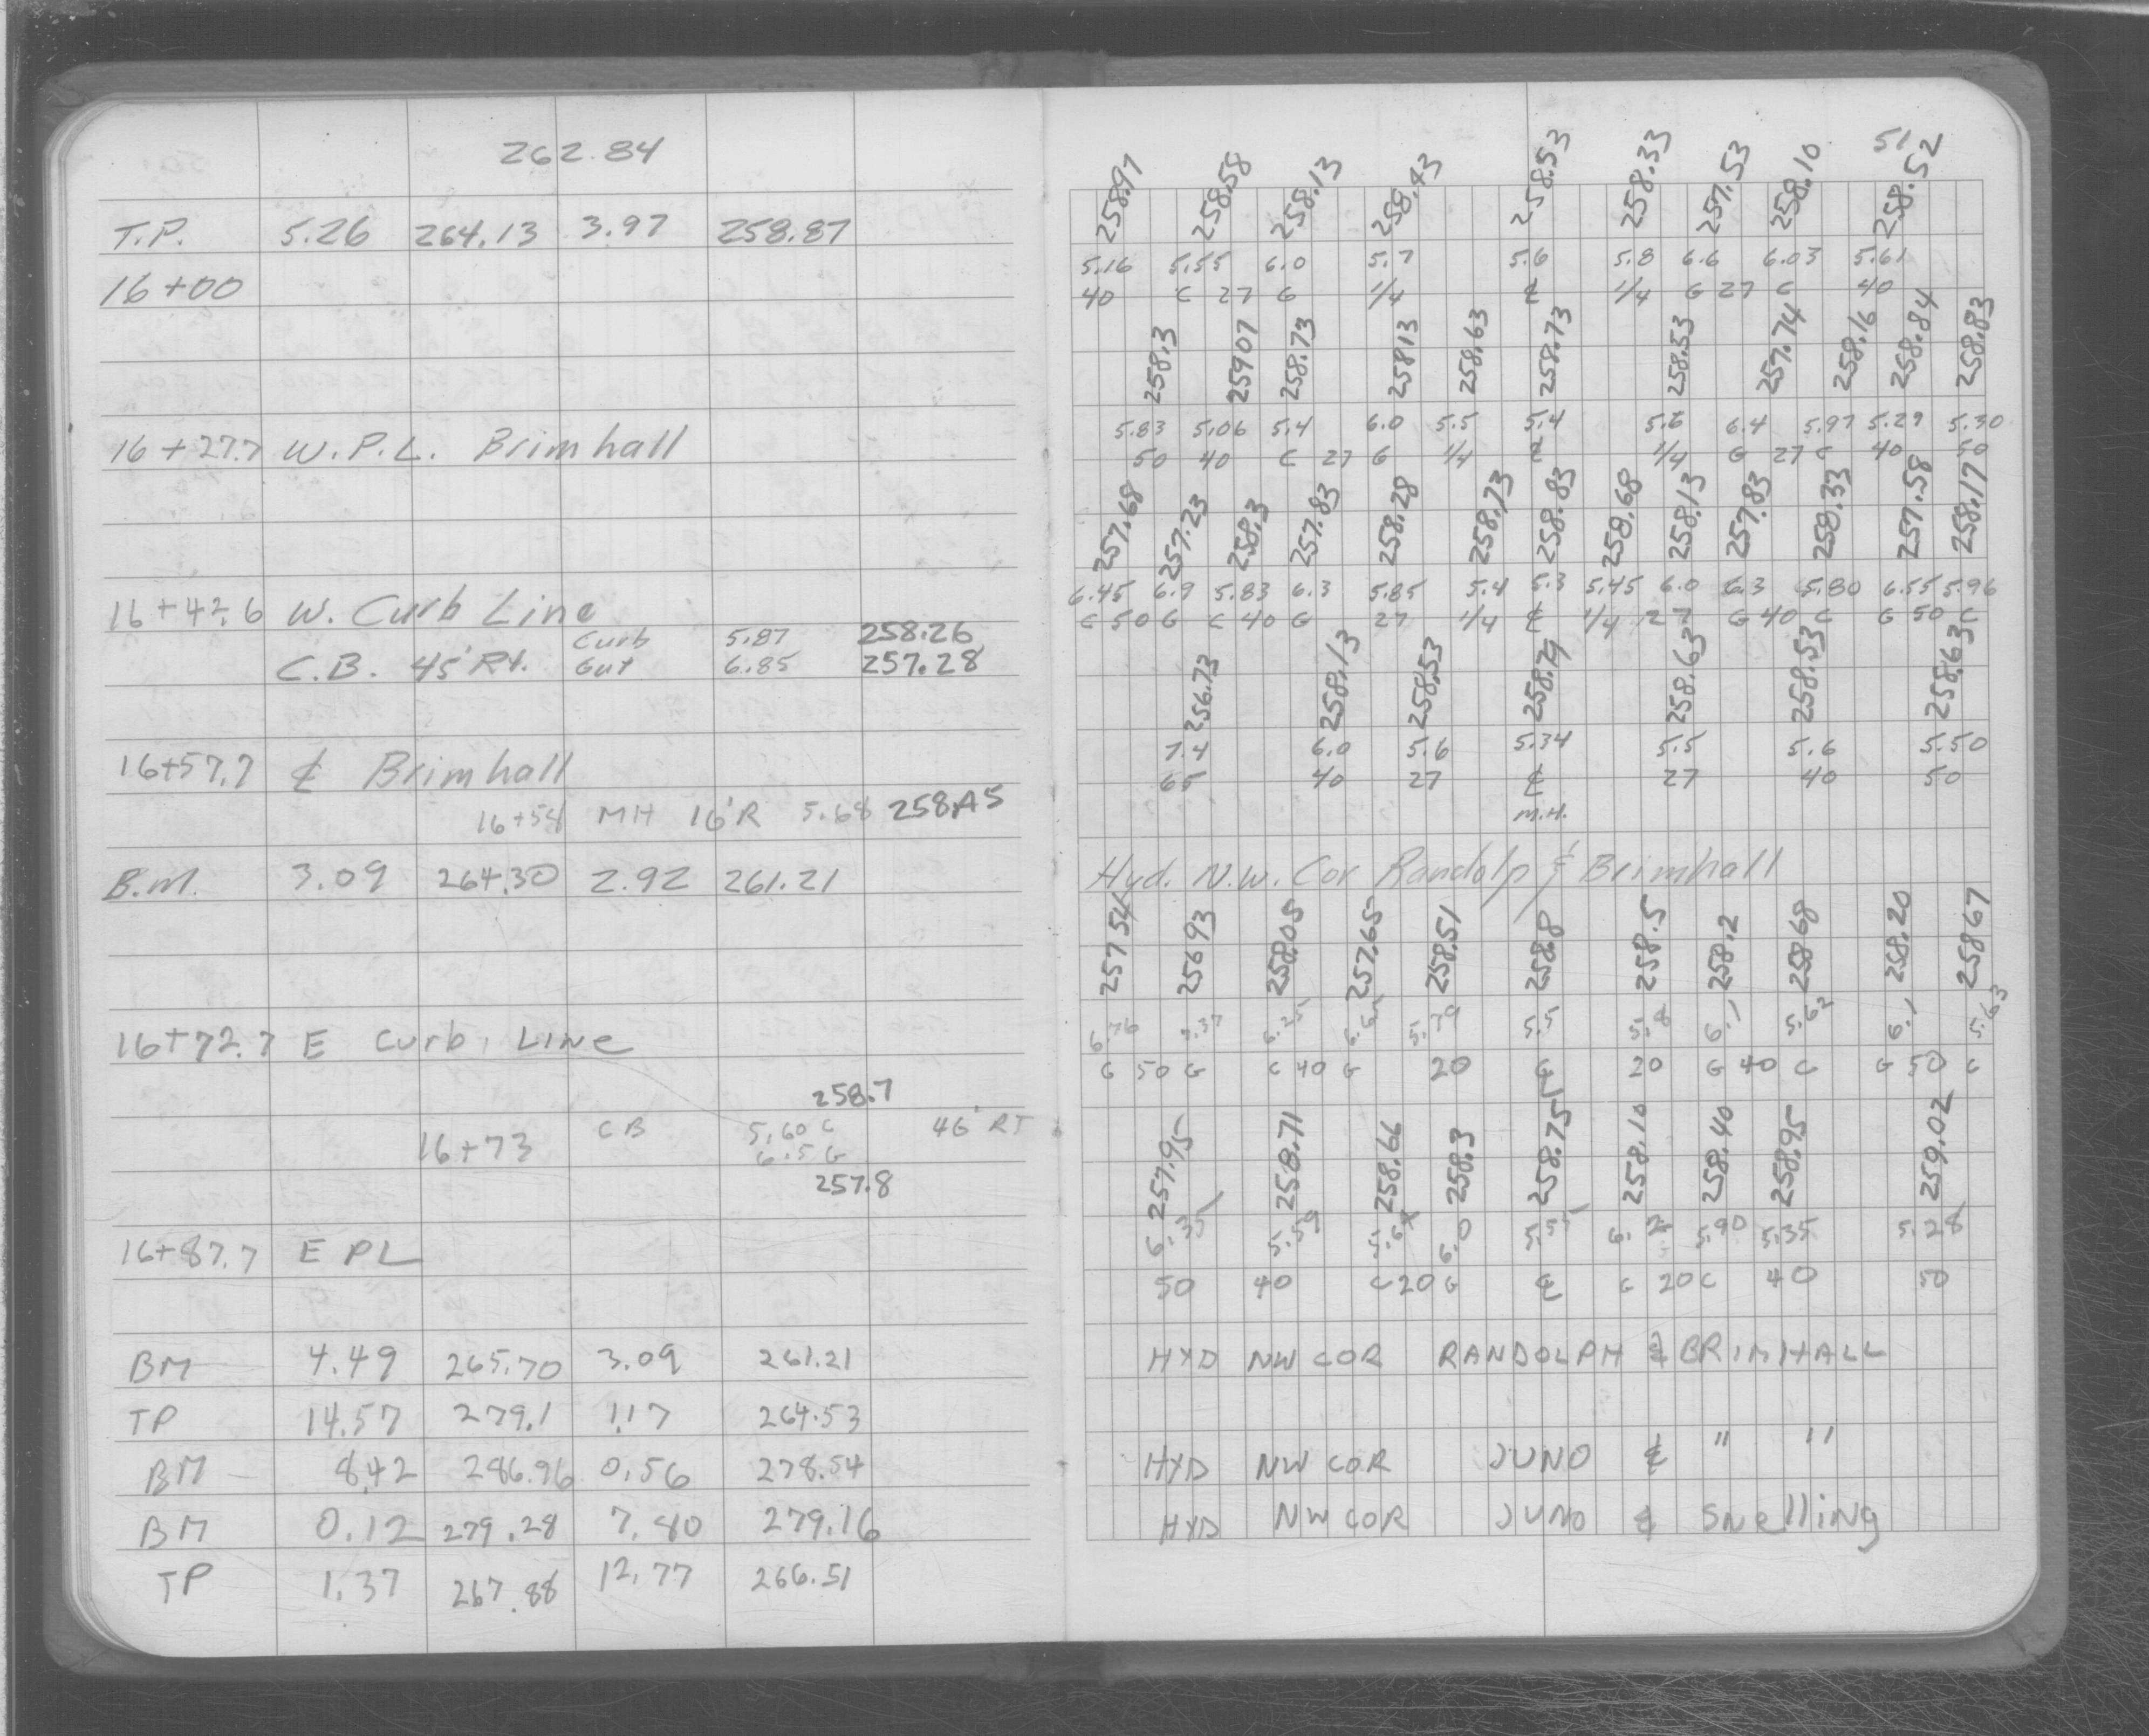 262.84
T.P. 5.26 264.13 3.97 258.87
16+00
16+27.7 W.P.L. Brimhall
16+42.6 W. Curb Line
Curb 5.87 258.26
C.B. 45' Rt. Gut 6.85 257.28
16+57.7 ⅊ Brimhall
16+54 MH 16'R 5.68 258.45
B.M. 3.09 264.30 2.92 261.21
16+72.7 E Curb, LINE
258.7
16+73 CB 5.60 C 46' RT
6.5 G
257.8
16+87.7 E PL
BM 4.49 265.70 3.09 261.21
TP 14.57 279.1 1.17 264.53
BM 8.42 286.96 0.56 278.54
BM 0.12 279.28 7.80 279.16
TP 1.37 267.88 12.77 266.51
51
258.97 258.58 258.13 258.43 258.53 258.33 257.53 258.10 258.52
5.16 5.55 6.0 5.7 5.6 5.8 6.6 6.03 5.61
40 C 27 G 1/4 ⅊ 1/4 G 27 C 40
258.3 259.07 258.73 258.13 258.63 258.73 258.53 257.74 258.16 258.84 258.83
5.83 5.06 5.4 6.0 5.5 5.4 5.6 6.4 5.97 5.29 5.30
50 40 C 27 G 1/4 ⅊ 1/4 G 27 C 40 50
257.68 257.23 258.3 257.83 258.28 258.73 258.83 258.68 258.13 257.83 258.33 257.58 258.17
6.45 6.9 5.83 6.3 5.85 5.4 5.3 5.45 6.0 6.3 5.80 6.55 5.96
C 50 G C 40 G 27 1/4 ⅊ 1/4 27 G 40 C G 50 C
256.73 258.13 258.53 258.79 258.63 258.53 258.63
7.4 6.0 5.6 5.34 5.5 5.6 5.50
65 40 27 ⅊ 27 40 50
M.H.
Hyd. N.W. Cor Randolp & Brimhall
257 54 256 93 258.05 257.65 258.51 258.8 258.5 258.2 258 68 258.20 258 67
6.76 7.37 6.25 6.65 5.79 5.5 5.8 6.1 5.62 6.1 5.63
C 50 G C 40 G 20 ⅊ 20 G 40 C G 50 C
257.95 258.71 258.66 258.3 258.75 258.10 258.40 258.95 259.02
6.35 5.59 5.64 6.0 5.55 6.2 5.90 5.35 5.28
50 40 C 20 G ⅊ G 20 C 40 50
HYD NW COR RANDOLPH & BRIMHALL
HYD NW COR JUNO & " "
HYD NW COR JUNO & Snelling